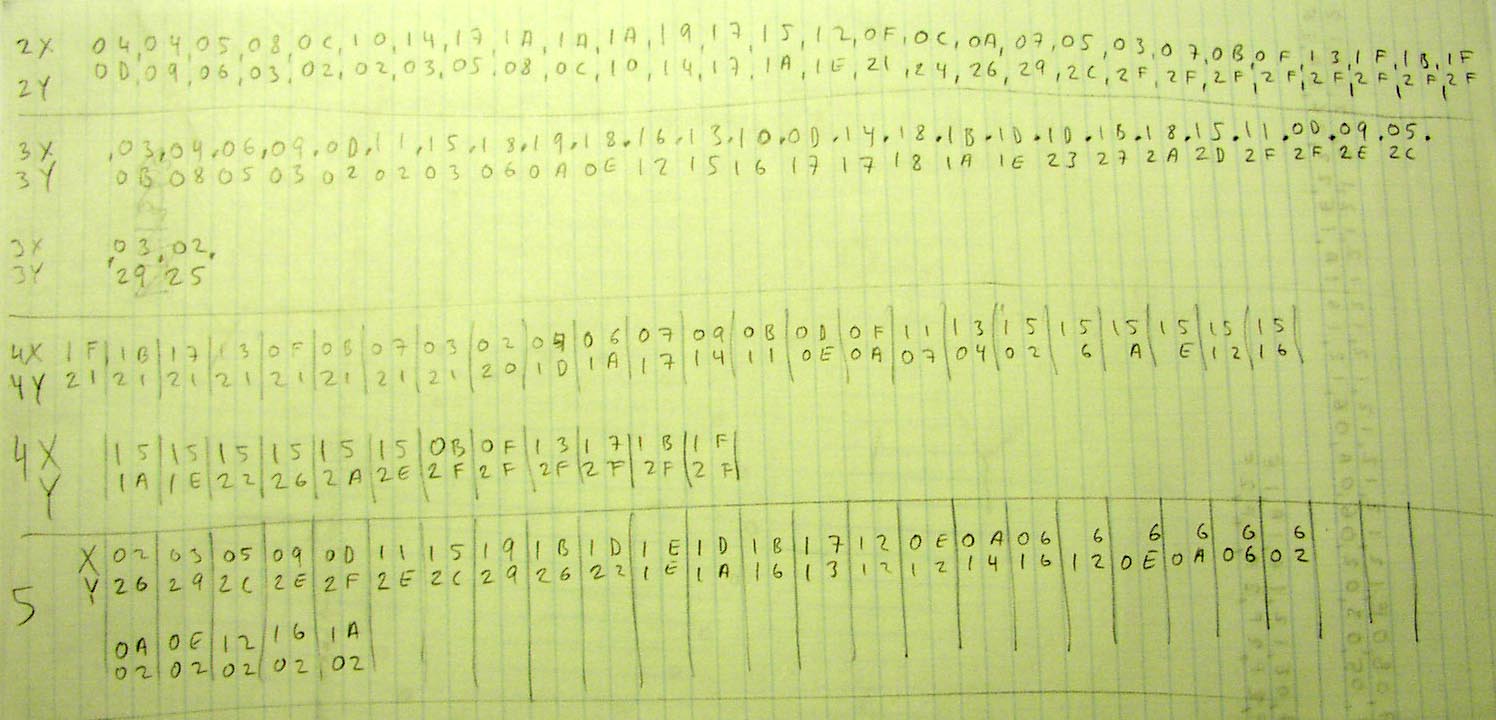 2X 04,04,05,08,0C,10,14,17,1A,1A,1A,19,17,15,12,0F,0C,0A,07,05,03,07,0B,0F,13,1F,1B,1F
2Y 0D,09,06,03,02,02,03,05,08,0C,10,14,17,1A,1E,21,24,26,29,2C,2F,2F,2F,2F,2F,2F,2F,2F
3X ,03,04,06,09,0D,11,15,18,19,18,16,13,10,0D,14,18,1B,1D,1D,1B,18,15,11,0D,09,05.
3Y 0B 08 05 03 02 02 03 06 0A 0E 12 15 16 17 17 18 1A 1E 23 27 2A 2D 2F 2F 2E 2C
3X ,03,02,
3Y ,29 25
4X 1F,1B|17|13|0F|0B|07|03|02|05|06|07|09|0B|0D|0F|11|13|15|15|15|15|15|15|
4Y 21|21|21|21|21|21|21|21|20|1D|1A|17|14|11|0E|0A|07|04|02|6|A|E|12|16|
4X |15|15|15|15|15|15|0B|0F|13|17|1B|1F|
Y |1A|1E|22|26|2A|2E|2F|2F|2F|2F|2F|2F|
5 X 02|03|05|09|0D|11|15|19|1B|1D|1E|1D|1B|17|12|0E|0A|06|6|6|6|6|6
Y 26|29|2C|2E|2F|2E|2C|29|26|22|1E|1A|16|13|12|12|14|16|12|0E|0A|06|02
0A|0E|12|16|1A
02|02|02|02|02